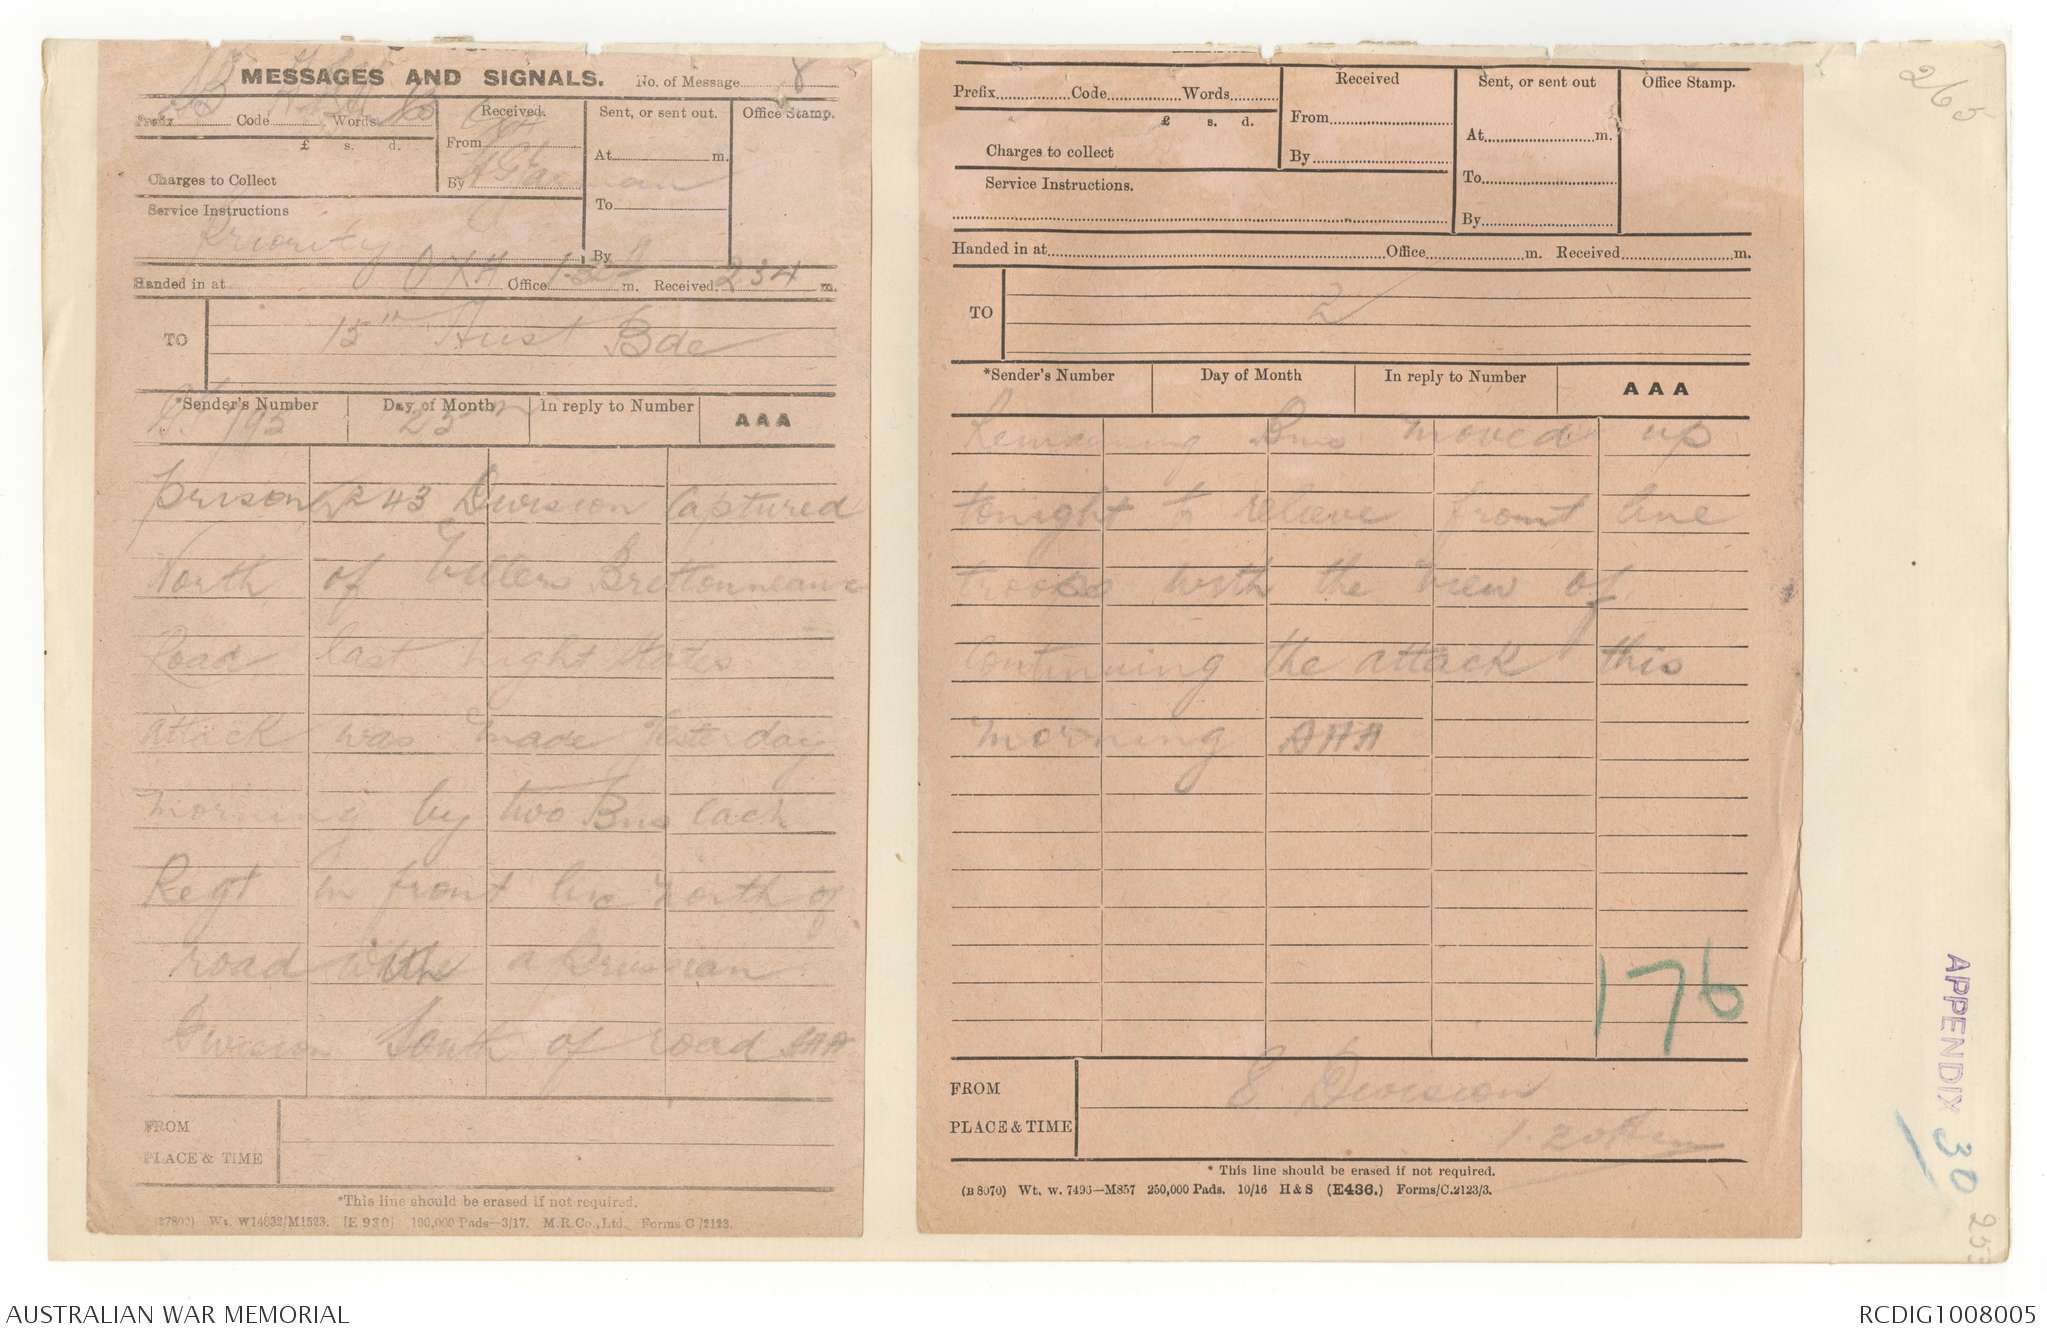 MESSAGES AND SIGNALS. No. of Message 8
Prefix Code Words
£ s. d.
Charges to Collect
Received.
From
By
Sent, or sent out.
At m.
To
By
Office Stamp.
Service Instructions
Priority
Handed in at Office m. Received 234 m.
TO 15th Aust Bde
*Sender's Number Day of Month In reply to Number AAA
193 25th
Prisoner 243 Division captured
North of Villers Brettonneaux
Road last night states
attack was made yesterday
morning by two Bns each
Regt in front line north of
road with a Prussian
Division South of road AAA
FROM
PLACE & TIME
*This line should be erased if not required.
(27800) Wt. W14632/M1523. (E 930) 100,000 Pads—3/17. M.R.Co.,Ltd. Forms C/2123.
Prefix Code Words
£ s. d.
Charges to collect
Received
From
By
Sent, or sent out
At m.
To
By
Office Stamp.
Service Instructions.
Handed in at Office m. Received m.
TO 2
*Sender's Number Day of Month In reply to Number AAA
Remaining Bns moved up
tonight to relieve front line
troops with the view of
continuing the attack this
morning AAA
176
FROM E Division
PLACE & TIME 1.20 Am
* This line should be erased if not required.
(B 8070) Wt. w. 7496—M857 250,000 Pads. 10/16 H & S (E436.) Forms/C.2123/3.
265
APPENDIX 30
253
AUSTRALIAN WAR MEMORIAL
RCDIG1008005